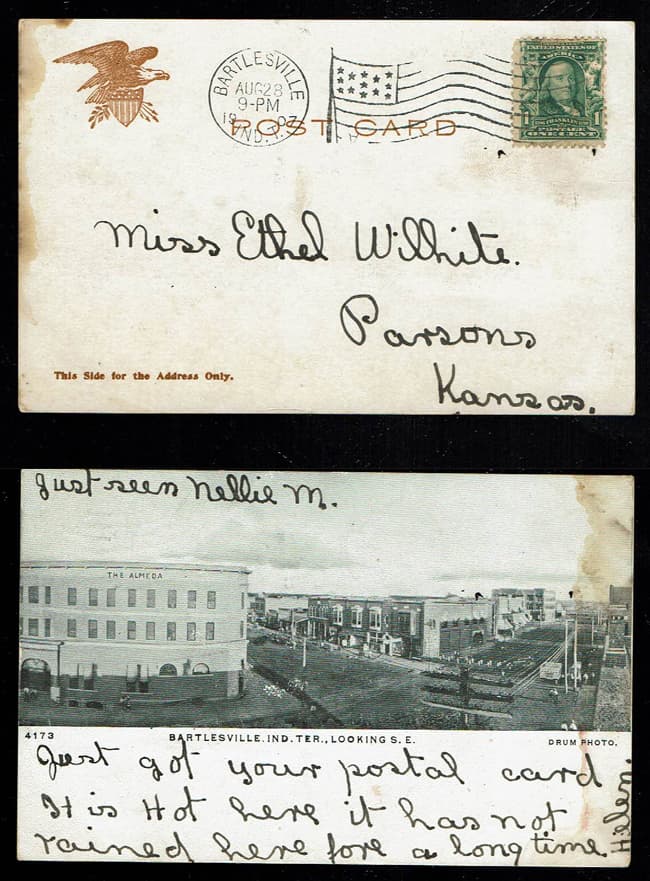 BARTLESVILLE
AUG 28
9-PM
1907
IND. T.
POST CARD
UNITED STATES OF AMERICA
1 1
FRANKLIN
POSTAGE
ONE CENT
Miss Ethel Wilhite.
Parsons
Kansas.
This Side for the Address Only.
Just seen Nellie M.
THE ALMEDA
4173 BARTLESVILLE. IND. TER., LOOKING S. E. DRUM PHOTO.
Just got your postal card
It is Hot here it has not
rained here fore a long time.
Helen.